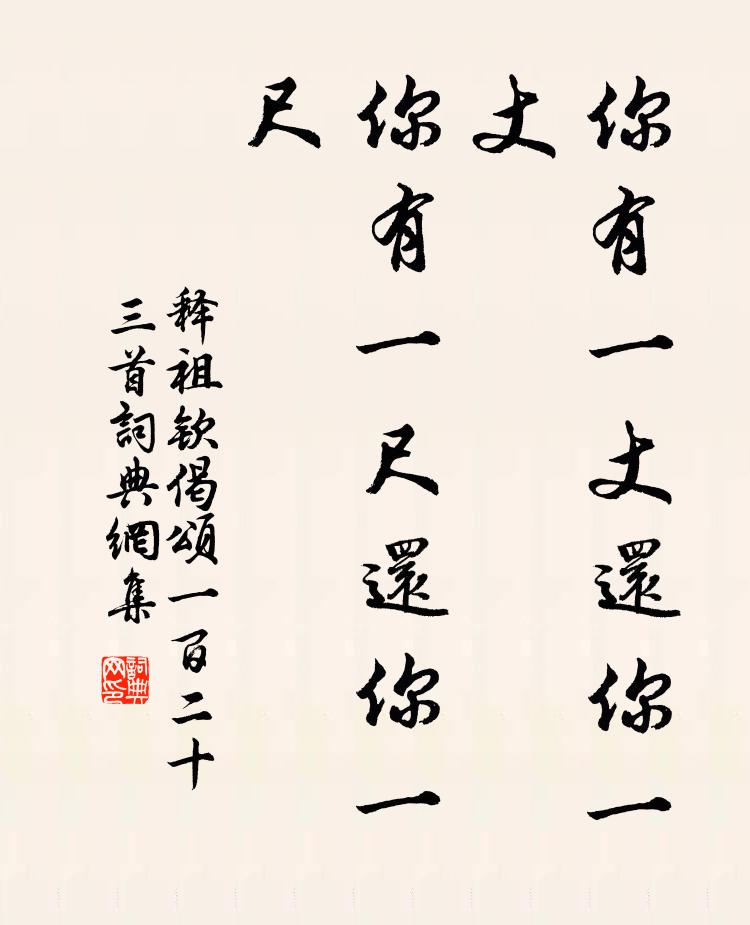 你有一丈還你一
丈
你有一尺還你一
尺
释祖欽偈頌一百二十
三首詞典網集
詞典
网印